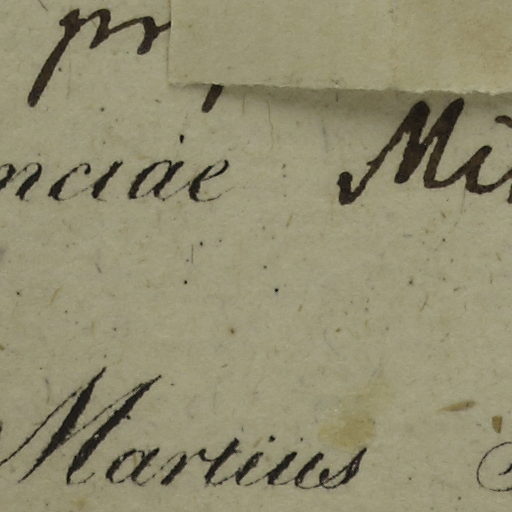 pr
nciae Mi
Martius